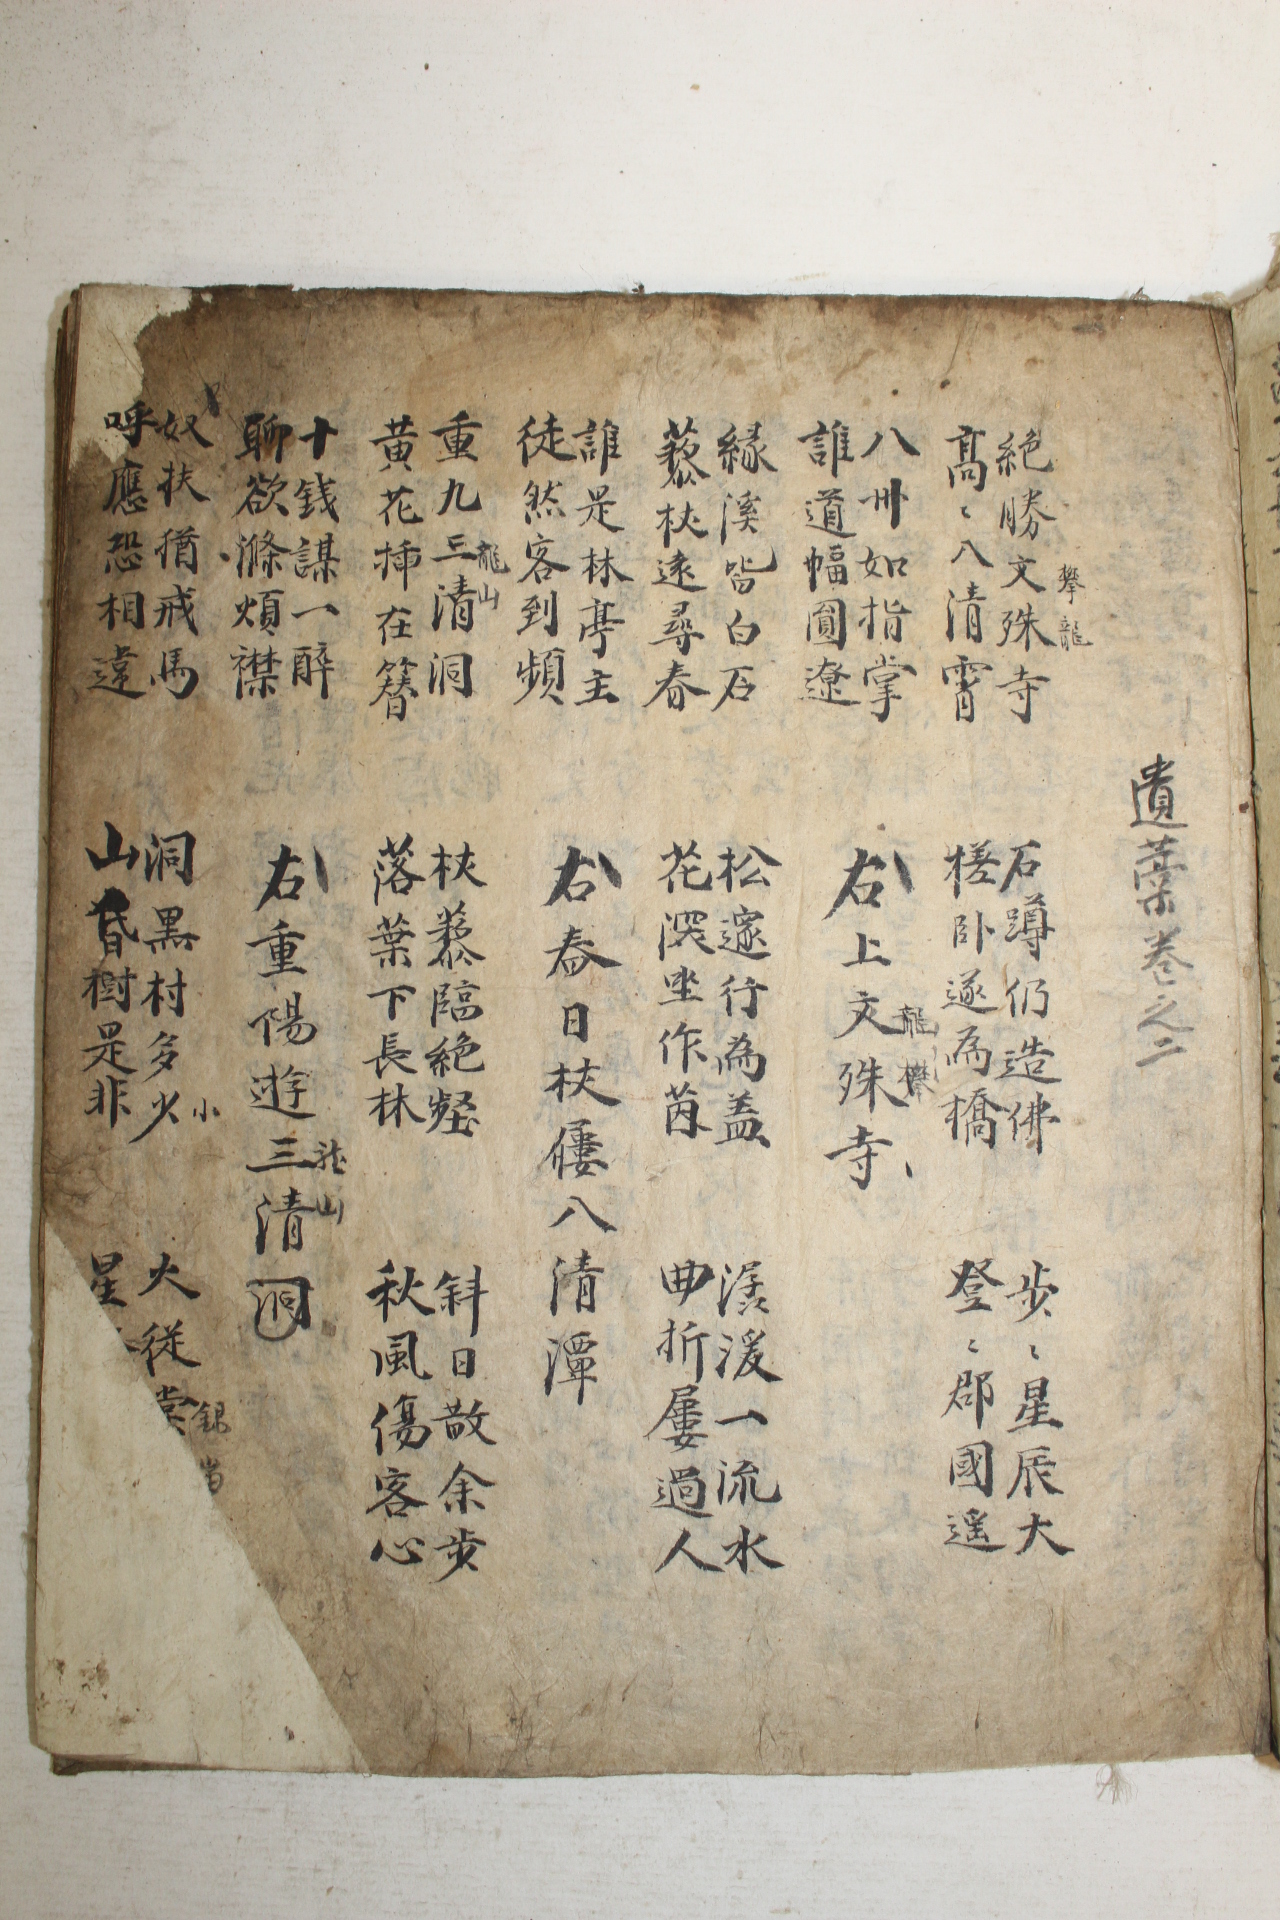 遺藁卷之二
攀龍
絶勝文殊寺
高ヽ入清霄
石蹲仍造佛
槎臥遂為橋
步ヽ星辰大
登ヽ郡國遥
八卅如指掌
誰道幅圓遼
右上文殊寺
龍攀
縁溪皆白石
藜杖遠尋春
松邃行為盖
花深坐作茵
潺湲一流水
曲折屢過人
誰是林亭主
徒然客到頻
右春日杖屨八清潭
重九三清洞
龍山
黄花揷在簪
杖藜臨絶壑
落葉下長林
斜日散余步
秋風傷客心
十錢謀一醉
聊欲滌煩襟
右重陽遊三清洞
龍山
奴扶猶戒馬
呼應恐相違
洞黒村多少
小
山昏樹是非
火從
星